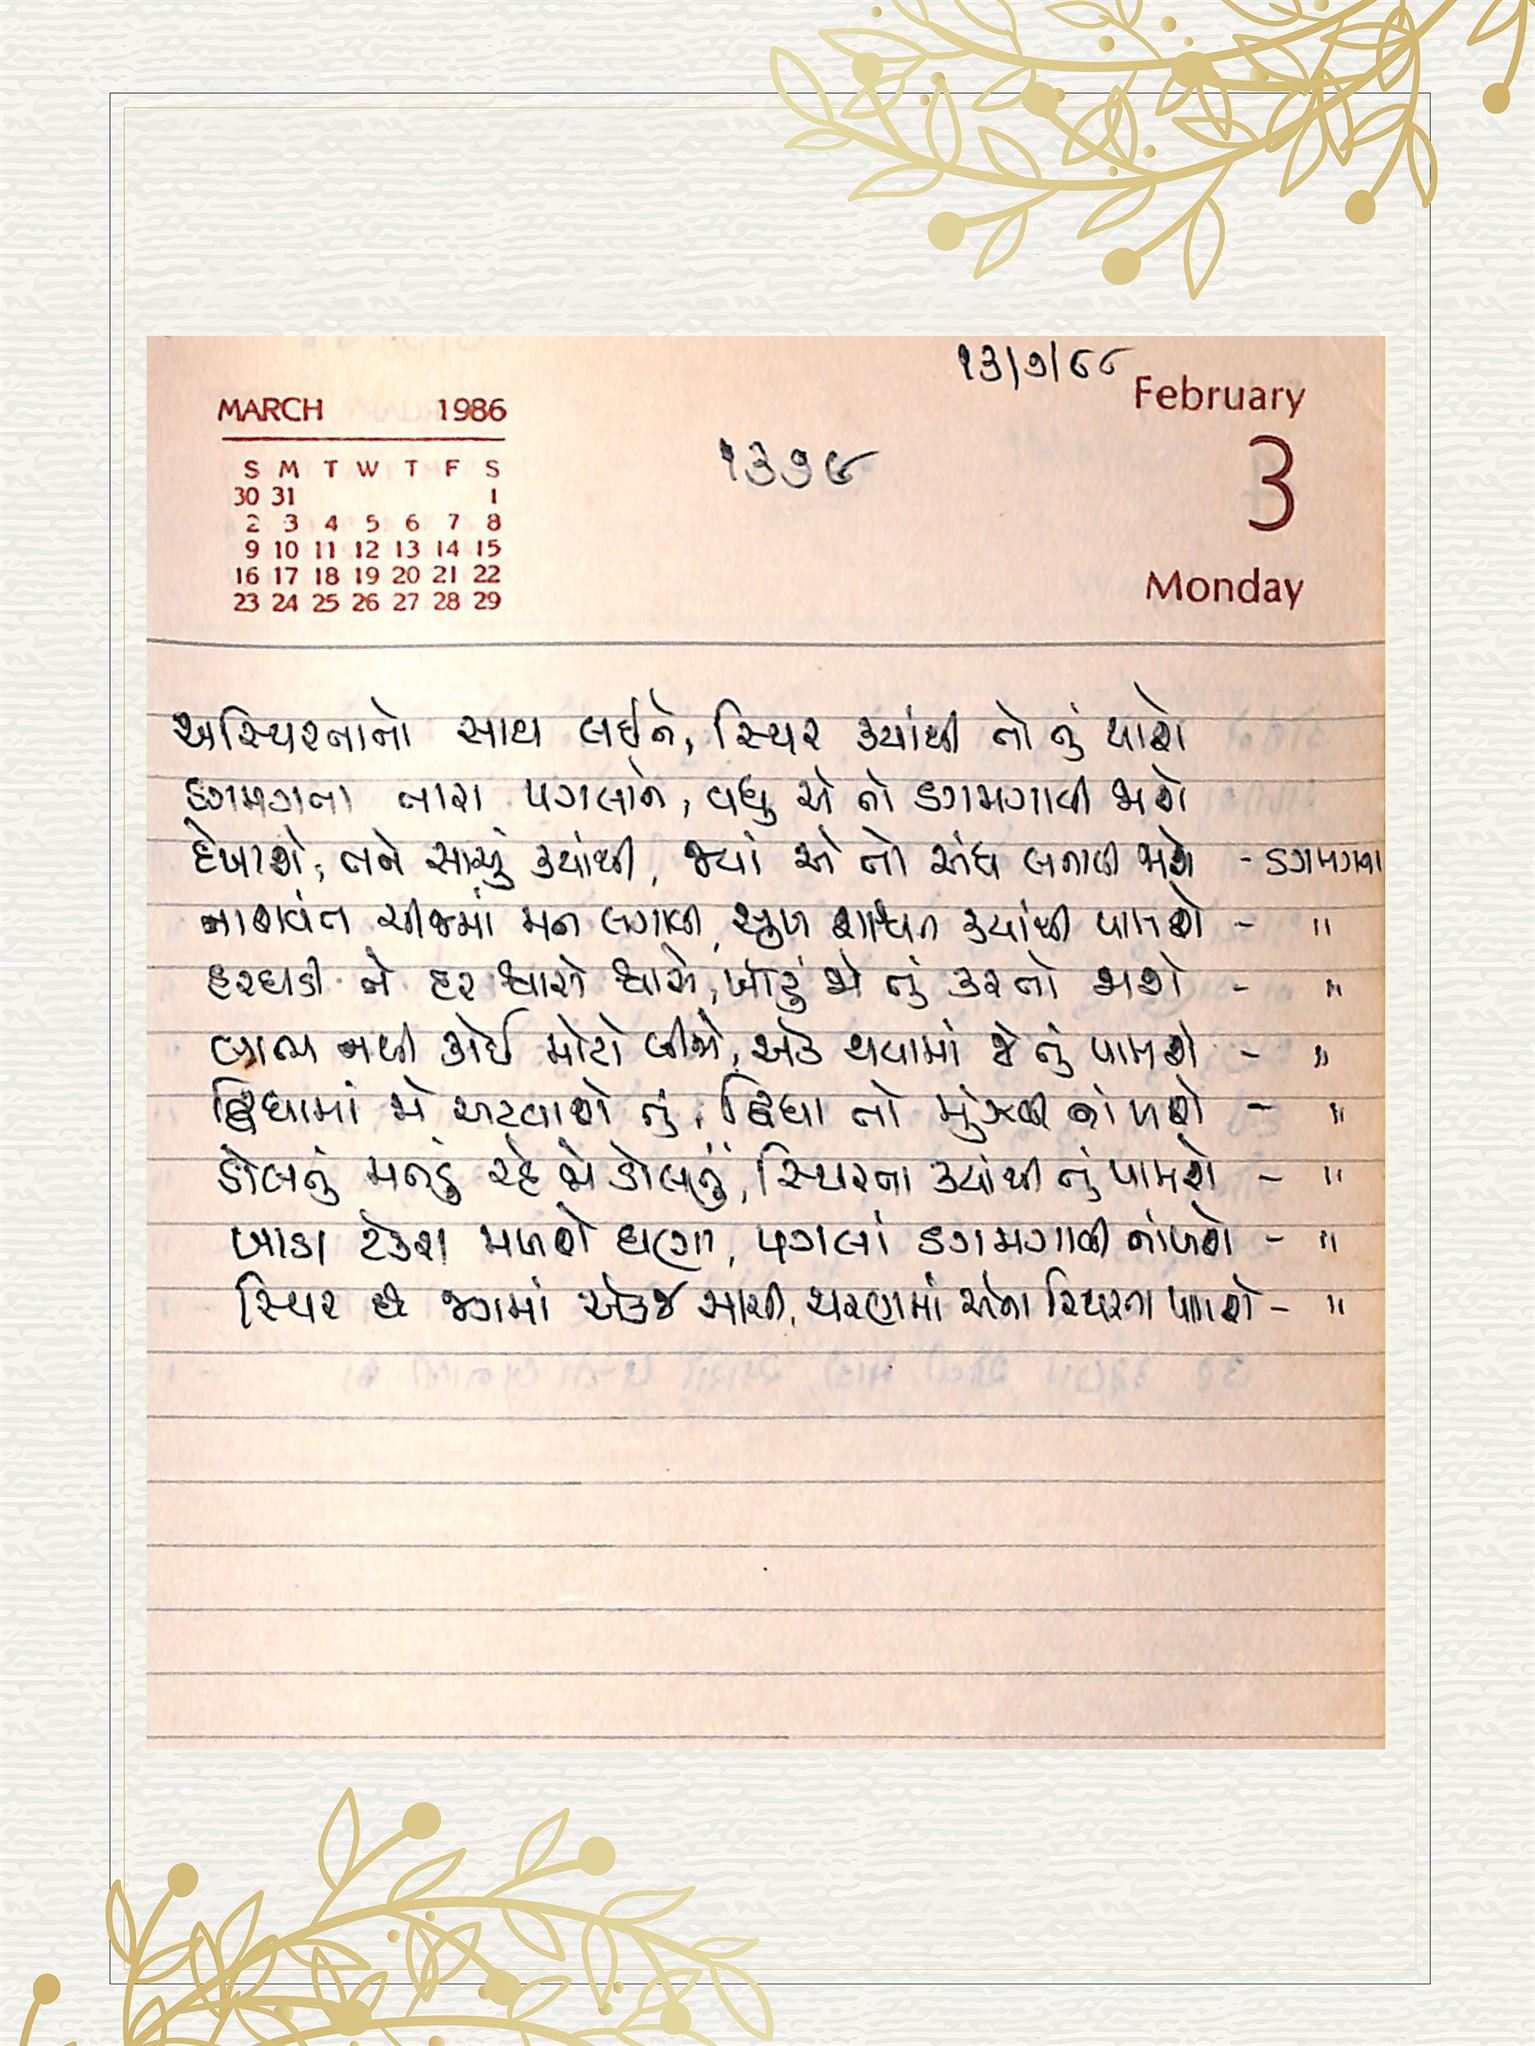 ૧૩/૭/૮૮
MARCH 1986
February
૧૩૭૯
S M T W T F S
30 31 1
2 3 4 5 6 7 8
9 10 11 12 13 14 15
16 17 18 19 20 21 22
23 24 25 26 27 28 29
3
Monday
અસ્થિરતાનો સાથ લઈને, સ્થિર ક્યાંથી તો તું થાશે
ડગમગતા તારા પગલાને, વધુ એ તો ડગમગાવી જાશે
દેખાશે, તને સાચું ક્યાંથી, જ્યાં એ તો અંધ બનાવી જાશે - ડગમગતા
નાશવંત ચીજમાં મન લગાવી, સુખ શાશ્વત ક્યાંથી પામશે - "
હરઘડી ને હર શ્વાસે શ્વાસે, ખોટું જો તું કરતો જાશે - "
લાભ નથી કોઈ મોટો બીજો, એક થવામાં જે તું પામશે - "
દ્વિધામાં જો અટવાશે તું, દ્વિધા તો મુંઝવી નાંખશે - "
ડોલતું મનડું રહે જો ડોલતું, સ્થિરતા ક્યાંથી તું પામશે - "
ખાડા ટેકરા મળશે ઘણા, પગલાં ડગમગાવી નાંખશે - "
સ્થિર છે જગમાં એકજ સાચી, ચરણમાં એના સ્થિરતા પામશે - "